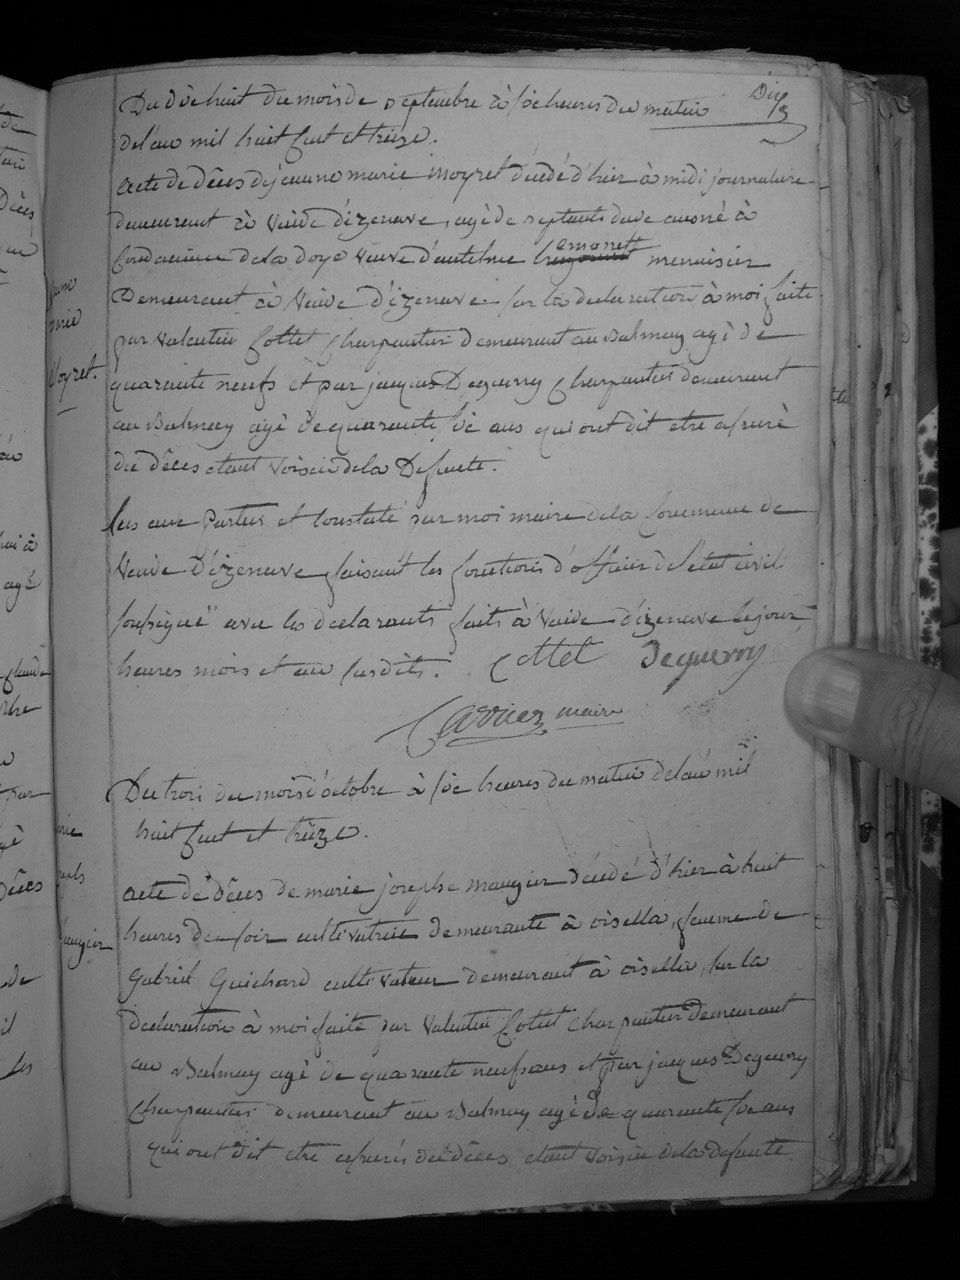 Dix
Du dixhuit du mois de septembre à six heures du matin
de l'an mil huit cent et treize.
acte de décès de jeanne marie moyret décédé d'hier à midi journalière
demeurant à Vieude d'izenave, agé de septante deux ans né à
Condamine de la doye veuve d'antelme monett menuisier
Demeurant à Vieude d'izenave sur la declaration à moi faite
par valentin Cottet Charpentier demeurant au Balmay agé de
quarante neufs et par jacques Degueury Charpentier demeurant
au Balmay agé de quarante six ans qui ont dit etre assuré
du décès etant voisin de la Defunte.
lus aux parties et constaté par moi maire de la Commune de
Vieude D'izenave faisant les fonctions d'officier de l'etat civil
soussigné avec les declarants faits à Vieude d'izenave le jour,
heures mois et an susdits. Cottet Degueroy
Carrier maire
jeanne
marie
Moyret.
Du trois du mois d'octobre à six heures du matin de l'an mil
huit cent et treize.
acte de décès de marie josephe maugier décédé d'hier à huit
heures du soir cultivatrice demeurante à oisella, femme de
Gabriel Guichard cultivateur demeurant à oisella, sur la
declaration à moi faite par valentin Cottet charpentier demeurant
au Balmay agé de quarante neufs ans et par jacques Degeury
Charpentier demeurant au Balmay agé de quarante six ans
qui ont dit etre assurés du décès etant voisin de la defunte